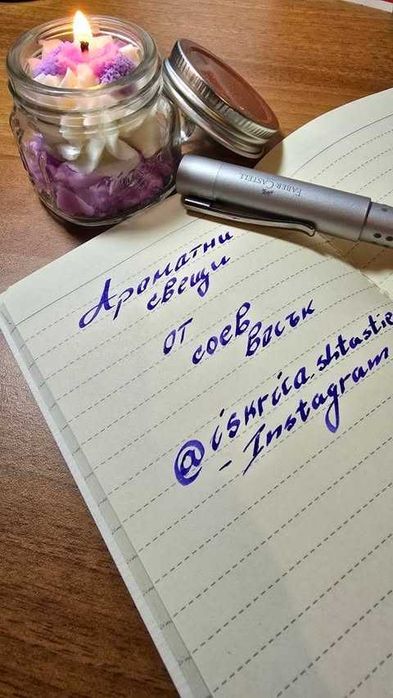 FABER-CASTELL
Ароматни
свещи
от
соев
восък
@iskrica.shtastie
- Instagram